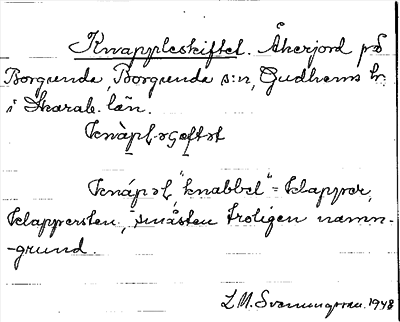 Knappleskiftet. Åkerjord på
Borgunda, Borgunda s:n, Gudhems hr.
i Skarab. län.
Knàpl-sgeftət
Knápəl, "knabbel" = klappror,
klappersten, småsten troligen namn-
-grund.
L. M. Svanungsson. 1948